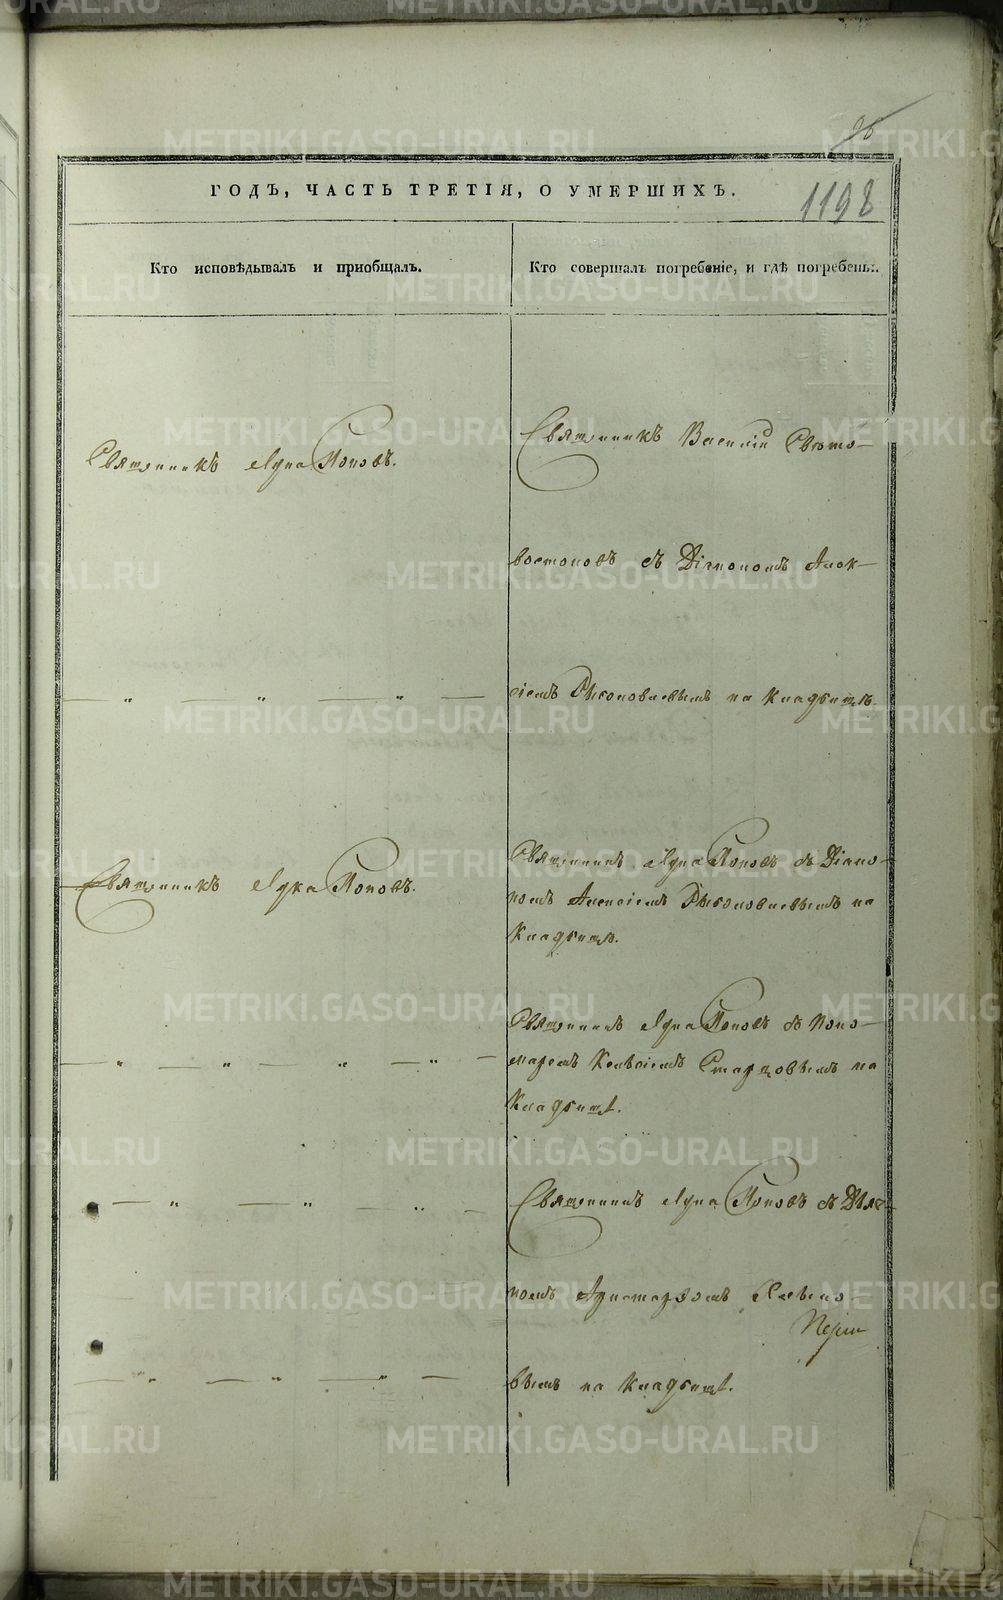 96
ГОДЪ, ЧАСТЬ ТРЕТІЯ, О УМЕРШИХЪ.
1198
Кто исповѣдывалъ и пріобщалъ.
Кто совершалъ погребеніе, и гдѣ погребены.
Священникъ Лука Поповъ.
Священникъ Василій Свѣто-
востоковъ съ Діакономъ Алек-
сіемъ на Кладбищѣ.
Священникъ Лука Поповъ.
Священникъ Лука Поповъ съ Діако-
номъ Алексіемъ на
Кладбищѣ.
Священникъ Лука Поповъ съ Поно-
маремъ Старцовымъ на
Кладбищѣ.
Священникъ Лука Поповъ съ Дьяч-
комъ Аристархомъ
вымъ на Кладбищѣ.
METRIKI.GASO-URAL.RU